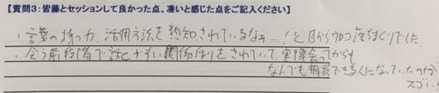 【質問3:皆藤とセッションして良かった点、凄いと感じた点をご記入ください】
・言葉の持つ力、活用方法を熟知されているなぁ…!と目からウロコ的でした。
・会う前段階で話しやすい関係作りをされていて実際会ってからも
なんでも相談できるくになっていたのが
スゴイ